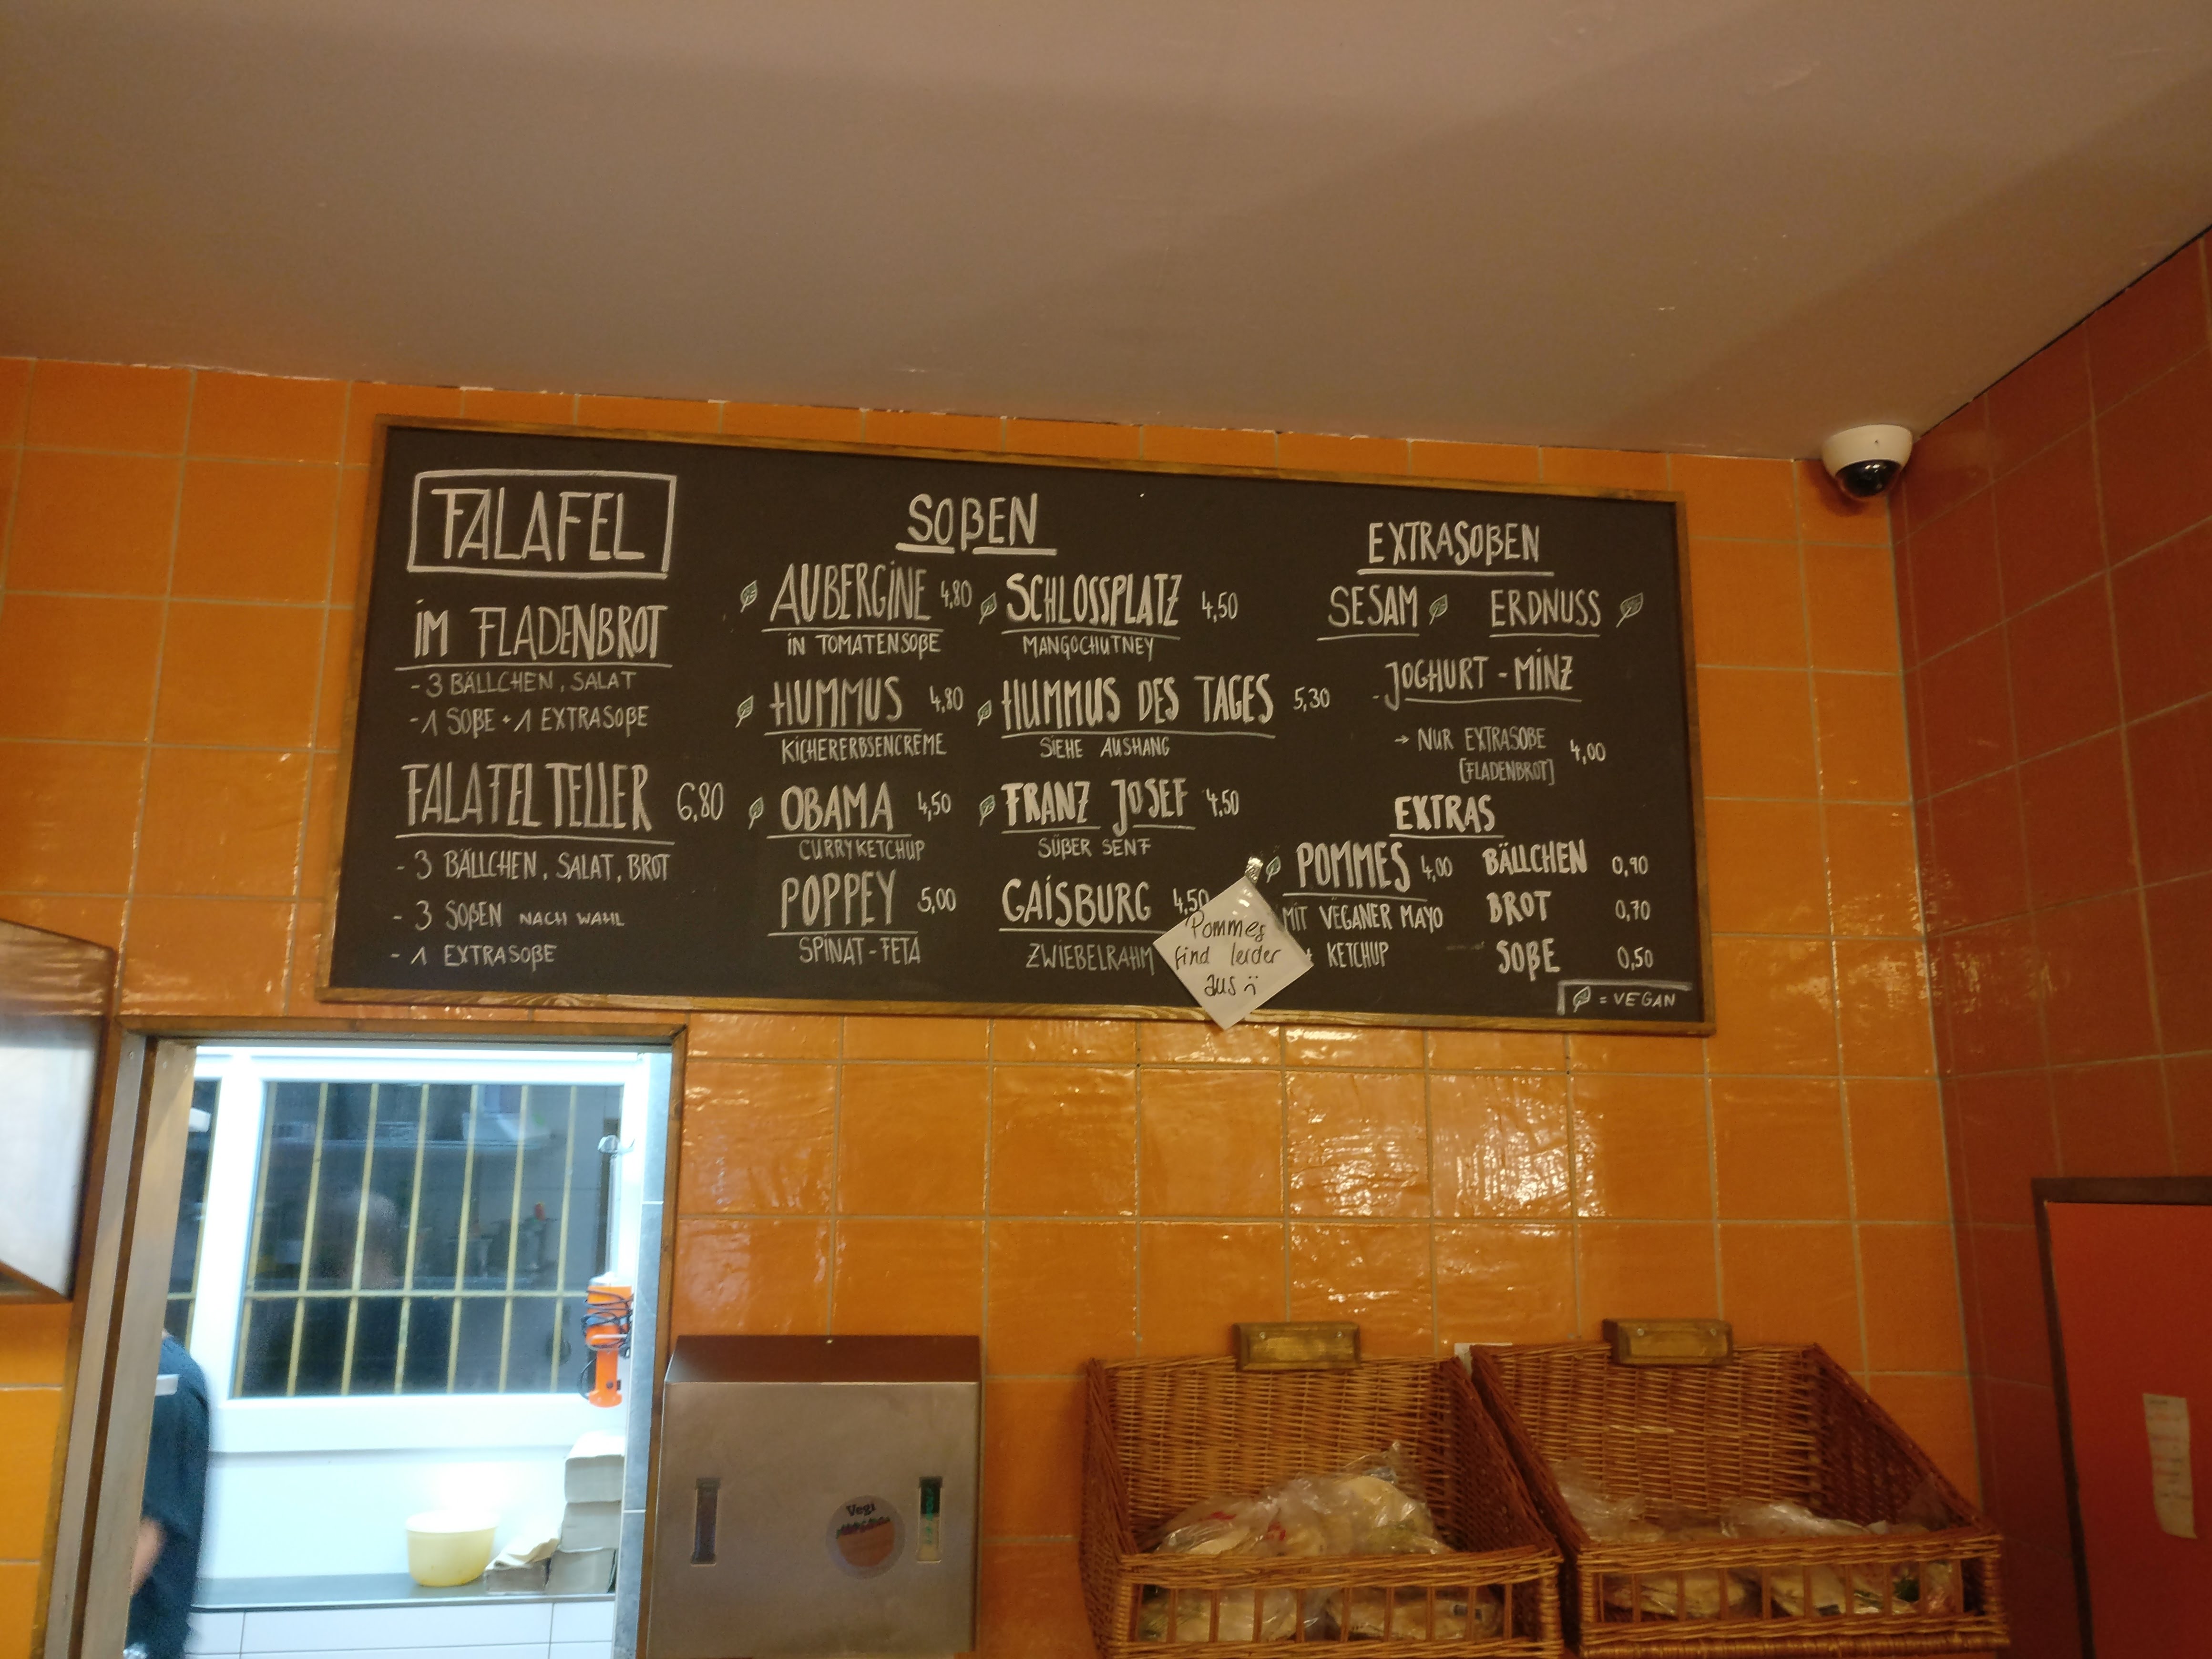 FALAFEL
IM FLADENBROT
- 3 BÄLLCHEN, SALAT
- 1 SOßE + 1 EXTRASOßE
FALAFEL TELLER 6,80
- 3 BÄLLCHEN, SALAT, BROT
- 3 SOßEN NACH WAHL
- 1 EXTRASOßE
SOßEN
AUBERGINE 4,80
IN TOMATENSOßE
HUMMUS 4,80
KICHERERBSENCREME
OBAMA 4,50
CURRYKETCHUP
POPPEY 5,00
SPINAT-FETA
SCHLOSSPLATZ 4,50
MANGOCHUTNEY
HUMMUS DES TAGES 5,30
SIEHE AUSHANG
FRANZ JOSEF 4,50
SÜßER SENF
GAISBURG 4,50
ZWIEBELRAHM
Pommes
sind leider
aus :(
EXTRASOßEN
SESAM ERDNUSS
- JOGHURT - MINZ
→ NUR EXTRASOßE 4,00
[FLADENBROT]
EXTRAS
POMMES 4,00
MIT VEGANER MAYO
+ KETCHUP
BÄLLCHEN 0,90
BROT 0,70
SOßE 0,50
= VEGAN
Vegi